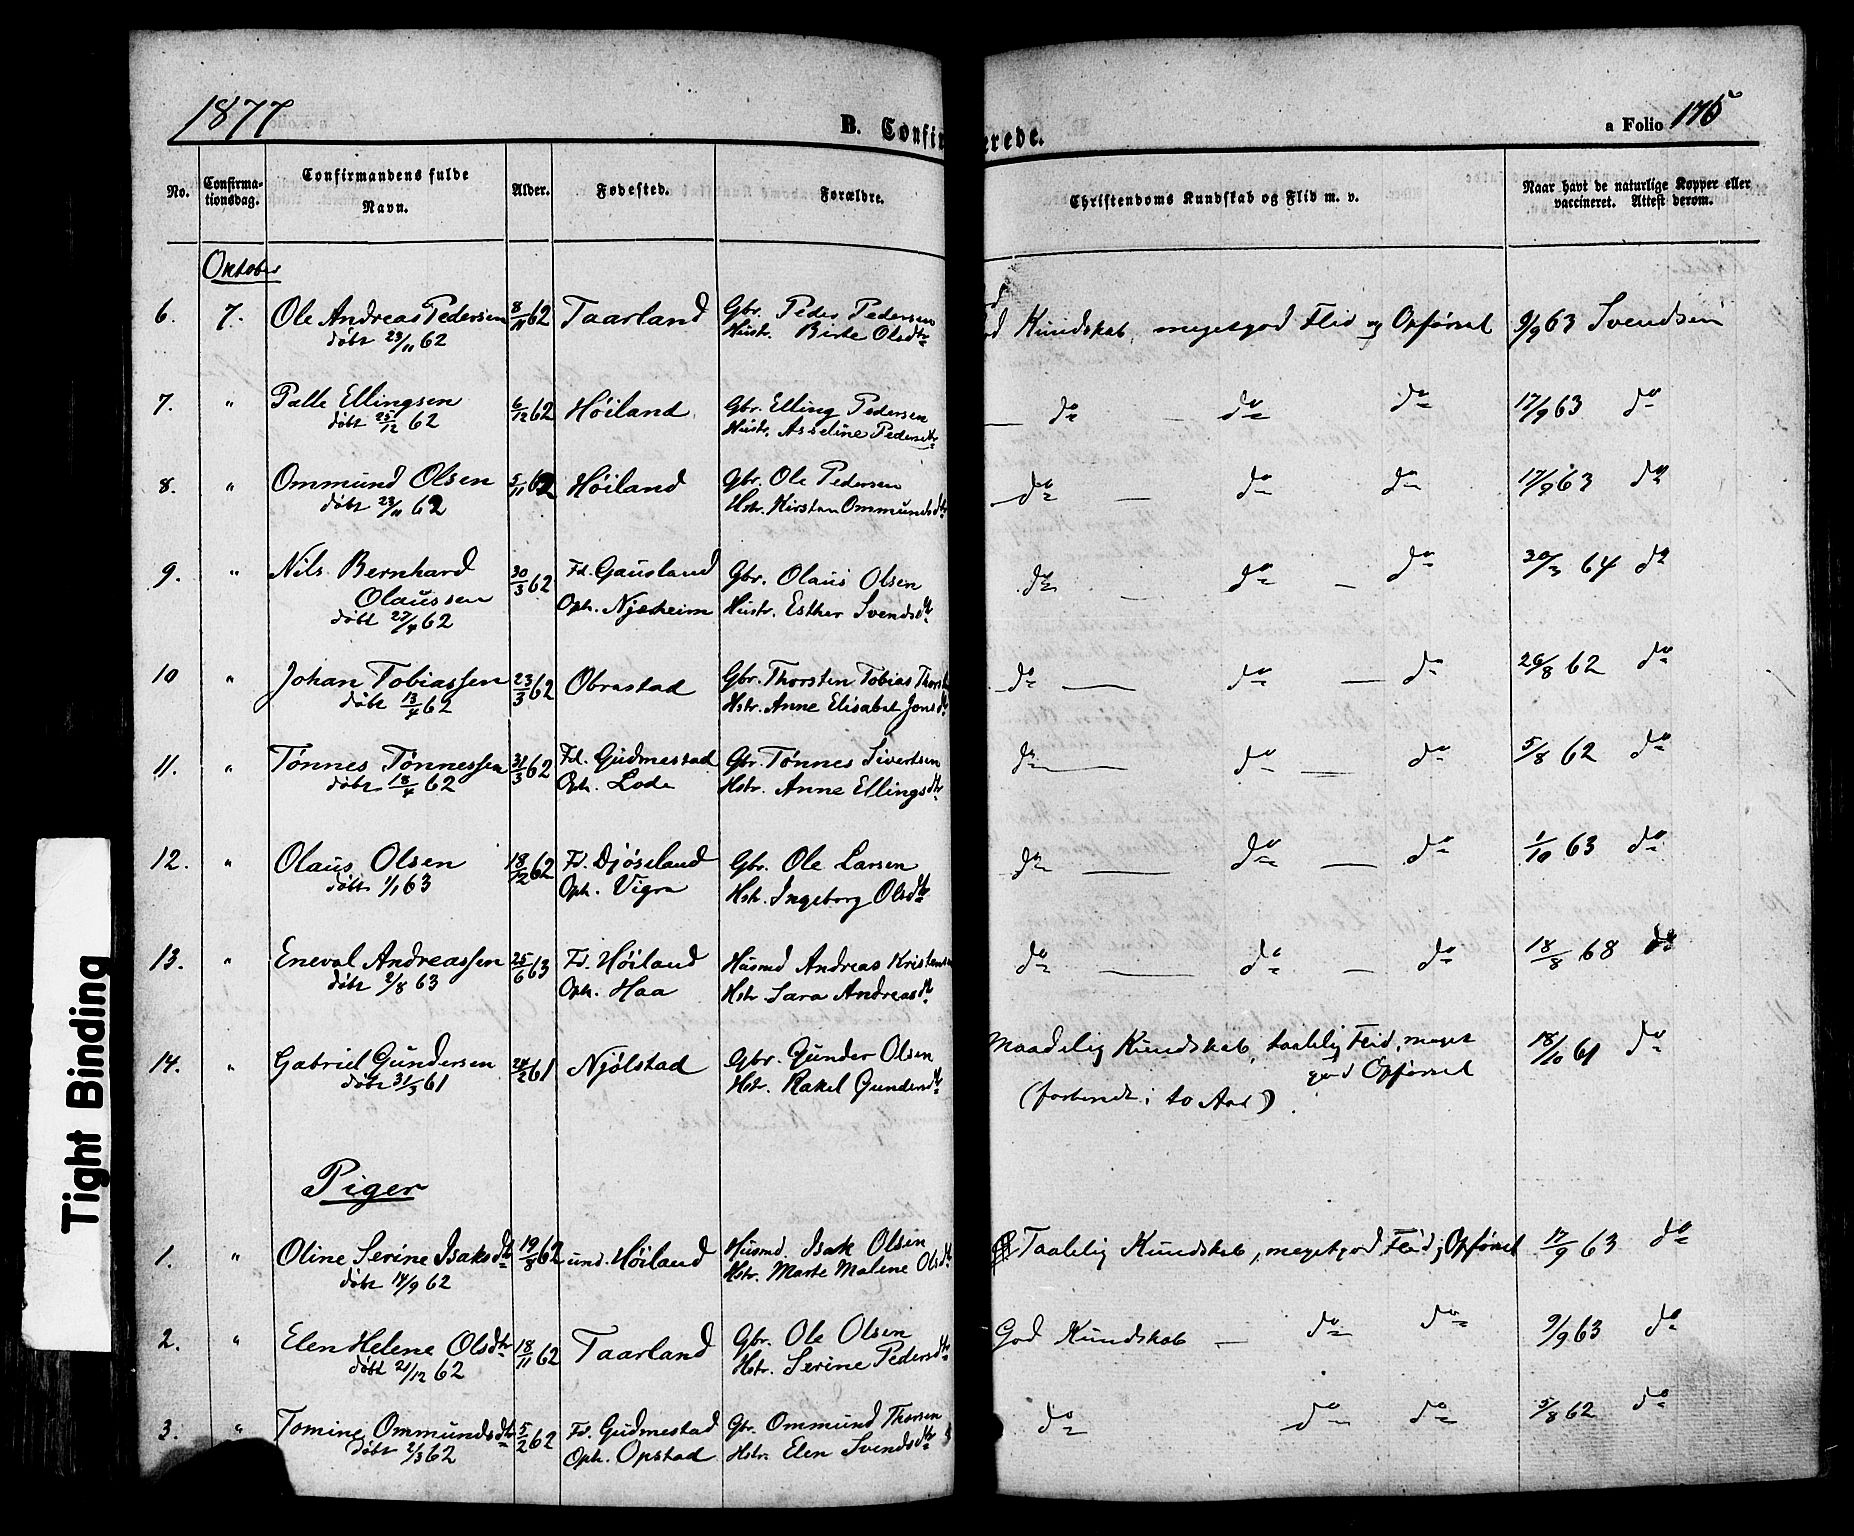 1877
B. Confir erede.
a Folio 175
No. Confirma-tionsdag. Confirmandens fulde Navn. Alder. Fødested. Forældre. Christendoms Kundskab og Flid m. v. Naar havt de naturlige Kopper eller vaccineret. Attest derom.
Oktober
6. 7. Ole Andreas Pedersen 8/11 62 Taarland Gbr. Peder Pedersen Kundskab, megetgod Flid og Opførsel 9/9 63 Svendsen
døbt 23/11 62 Hustr. Birte Olsdtr
7. " Palle Ellingsen 6/12 62 Høiland Gbr. Elling Pedersen — do — do do 17/9 63 do
døbt 25/12 62 Hustr. Asseline Pedersdtr
8. " Ommund Olsen 5/11 62 Høiland Gbr. Ole Pedersen — do — do do 17/9 63 do
døbt 23/11 62 Hstr. Kirsten Ommundsdtr
9. " Nils Bernhard 30/3 62 Fd. Gausland Gbr. Olaus Olsen do do — do 30/3 64 do
Olaussen Oph. Njærheim Hustr. Esther Svendsdtr
døbt 27/4 62
10 " Johan Tobiassen 23/3 62 Obrestad Gbr. Thorsten Tobias Thorst do — do — do 26/8 62 do
døbt 13/4 62 Hstr. Anne Elisabet Jonsdtr
11. " Tønnes Tønnessen 31/3 62 Fd. Gudmestad Gbr. Tønnes Sivertsen do — do — do 5/8 62 do
døbt 18/4 62 Oph. Lode Hstr. Anne Ellingsdtr
12. " Olaus Olsen 18/12 62 Fd. Djøseland Gbr. Ole Larsen do — do — do 1/10 63 do
døbt 1/1 63 Oph. Vigre Hstr. Ingeborg Olsdtr
13. " Eneval Andreassen 25/6 63 Fd. Høiland Husmd Andreas Kristensen do — do — do 18/8 68 do
døbt 2/8 63 Oph. Haa Hstr Sara Andreasdtr
14. " Gabriel Gundersen 24/2 61 Njølstad Gbr. Gunder Olsen Maadelig Kundskab, taalelig Flid, meget 18/10 61 do
døbt 31/3 61 Hstr. Rakel Gundersdtr god Opførsel
(forberedt i to Aar).
Piger
1. " Oline Serine Isaksdtr 19/8 62 und. Høiland Husmd. Isak Olsen Taalelig Kundskab, megetgod Flid og Opførsel 17/9 63 do
døbt 14/9 62 Hstr. Marte Malene Olsdtr
2. " Elen Helene Olsdtr 18/11 62 Taarland Gbr. Ole Olsen God Kundskab — do do 9/9 63 do
døbt 21/12 62 Hstr. Serine Pedersdtr
3. " Tomine Ommundsdtr 5/2 62 Fd. Gudmestad Gbr. Ommund Thorsen do do do 5/8 62 do
døbt 2/3 62 Oph. Opstad Hstr. Elen Svendsdtr
Tight Binding